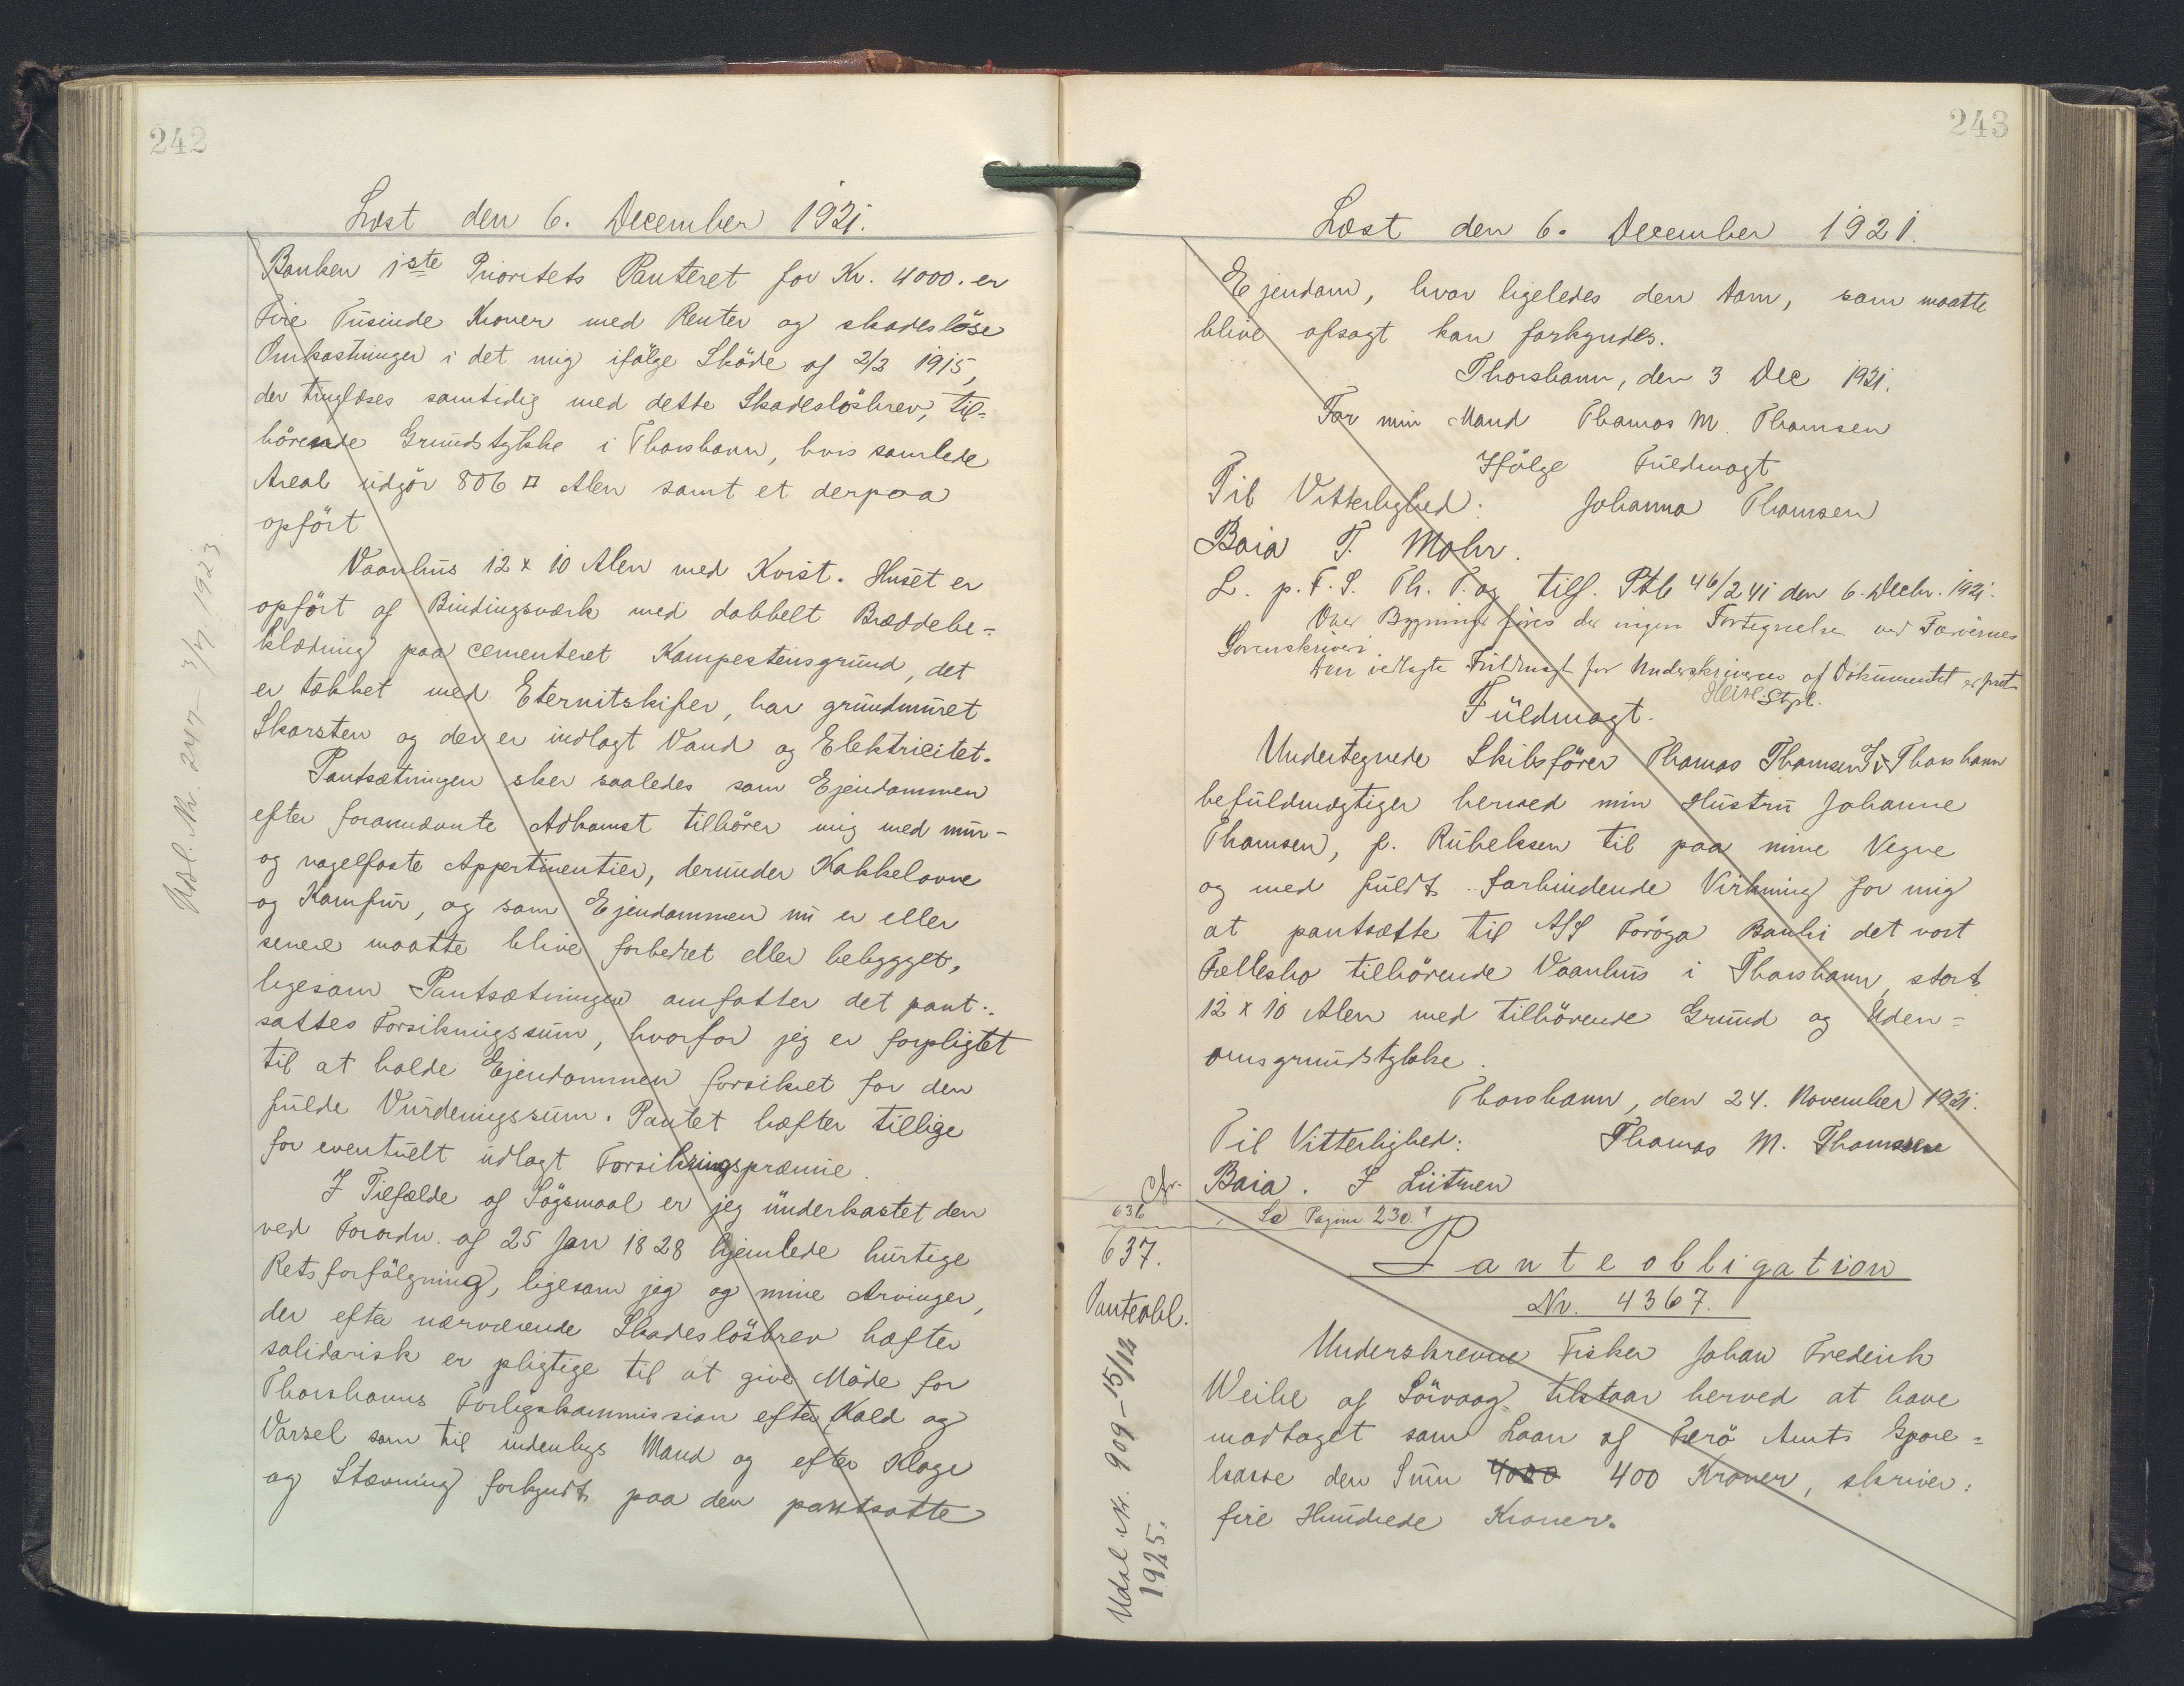 242
Læst den 6. December 1921.
Banken 1ste Prioritets Panteret for Kr. 4000. er
Fire Tusinde Kroner med Renter og skadesløse
Omkostninger i det mig ifølge Skøde af 2/3 1915,
der tinglæses samtidig med dette Skadesløsbrev, til-
hørende Grundstykke i Thorshavn, hvis samlede
Areal udgør 806 □ Alen samt et derpaa
opført
Vaanhus 12 x 10 Alen med Kvist. Huset er
opført af Bindingsværk med dobbelt Bræddebe-
klædning paa cementeret Kampestensgrund, det
er tækket med Eternitskifer, har grundmuret
Skorsten og der er indlagt Vand og Elektricitet.
Pantsætningen sker saaledes som Ejendommen
efter forannævnte Adkomst tilhører mig med mur-
og nagelfaste Appertinentier, derunder Kakkelovne
og Komfur, og som Ejendommen nu er eller
senere maatte blive forbedret eller bebygget,
ligesom Pantsætningen omfatter det pant-
sattes Forsikringssum, hvorfor jeg er forpligtet
til at holde Ejendommen forsikret for den
fulde Vurderingssum. Pantet hæfter tillige
for eventuelt udlagt Forsikringspræmie.
I Tilfælde af Søgsmaal er jeg underkastet den
ved Forordn. af 25 Jan 1828 hjemlede hurtige
Retsforfølgning, ligesom jeg og mine Arvinger,
der efter nærværende Skadesløsbrev hæfter
solidarisk er pligtige til at give Møde for
Thorshavns Forligskommission efter Kald og
Varsel som til indenbys Mand og efter Klage
og Stævning forkyndt paa den pantsatte
Udsl. Nr. 247 - 3/7 1923.
243
Læst den 6. December 1921.
Ejendom, hvor ligeledes den Dom, som maatte
blive afsagt kan forkyndes.
Thorshavn, den 3 Dec 1921.
For min Mand Thomas M. Thomsen
Ifølge Fuldmagt
Til Vitterlighed: Johanna Thomsen
Baia T. Mohr.
L. p. F. S. Th. T. og tilf. Ptb 46/241 den 6. Decbr. 1921.
Over Bygninger føres der ingen Fortegnelse ved Færøernes
Sorenskriveri
Den vedlagte Fuldmagt for Underskriveren af Dokumentet er
Stpl.
Fuldmagt.
Undertegnede Skibsfører Thomas Thomsen Thorshavn
befuldmægtiger herved min Hustru Johanne
Thomsen, f. Rubeksen til paa mine Vegne
og med fuldt forbindende Virkning for mig
at pantsætte til A/S Föröya Banki det vort
Fællesbo tilhørende Vaanhus i Thorshavn, stort
12 x 10 Alen med tilhørende Grund og Uden-
omsgrundstykke.
Thorshavn, den 24. November 1921.
Til Vitterlighed: Thomas M. Thomsen
Baia. I Lützen
636 Se Pagina 230.
637. Panteobligation
Panteobl. Nr. 4367.
Underskrevne Fisker Johan Frederik
Weihe af Sörvaag tilstaar herved at have
modtaget som Laan af Færö Amts Spare-
kasse den Sum 4000 400 Kroner, skriver:
fire Hundrede Kroner.
Udsl. Nr. 909 - 15/12
1925.